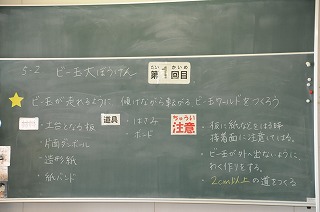 5-2 ビー玉大ぼうけん
だい かいめ
第 1 回目
ビー玉が走れるように 傾けながら転がる ビー玉ワールドをつくろう
・土台となる板
・片面ダンボール
・造形紙
・紙バンド
道具
・はさみ
・ボンド
ちゅうい
注意
・板に紙などをはる時
接着面に注意してはる。
・ビー玉が外へ出ないように、
わく作りをする。
・2cm以上の道をつくる